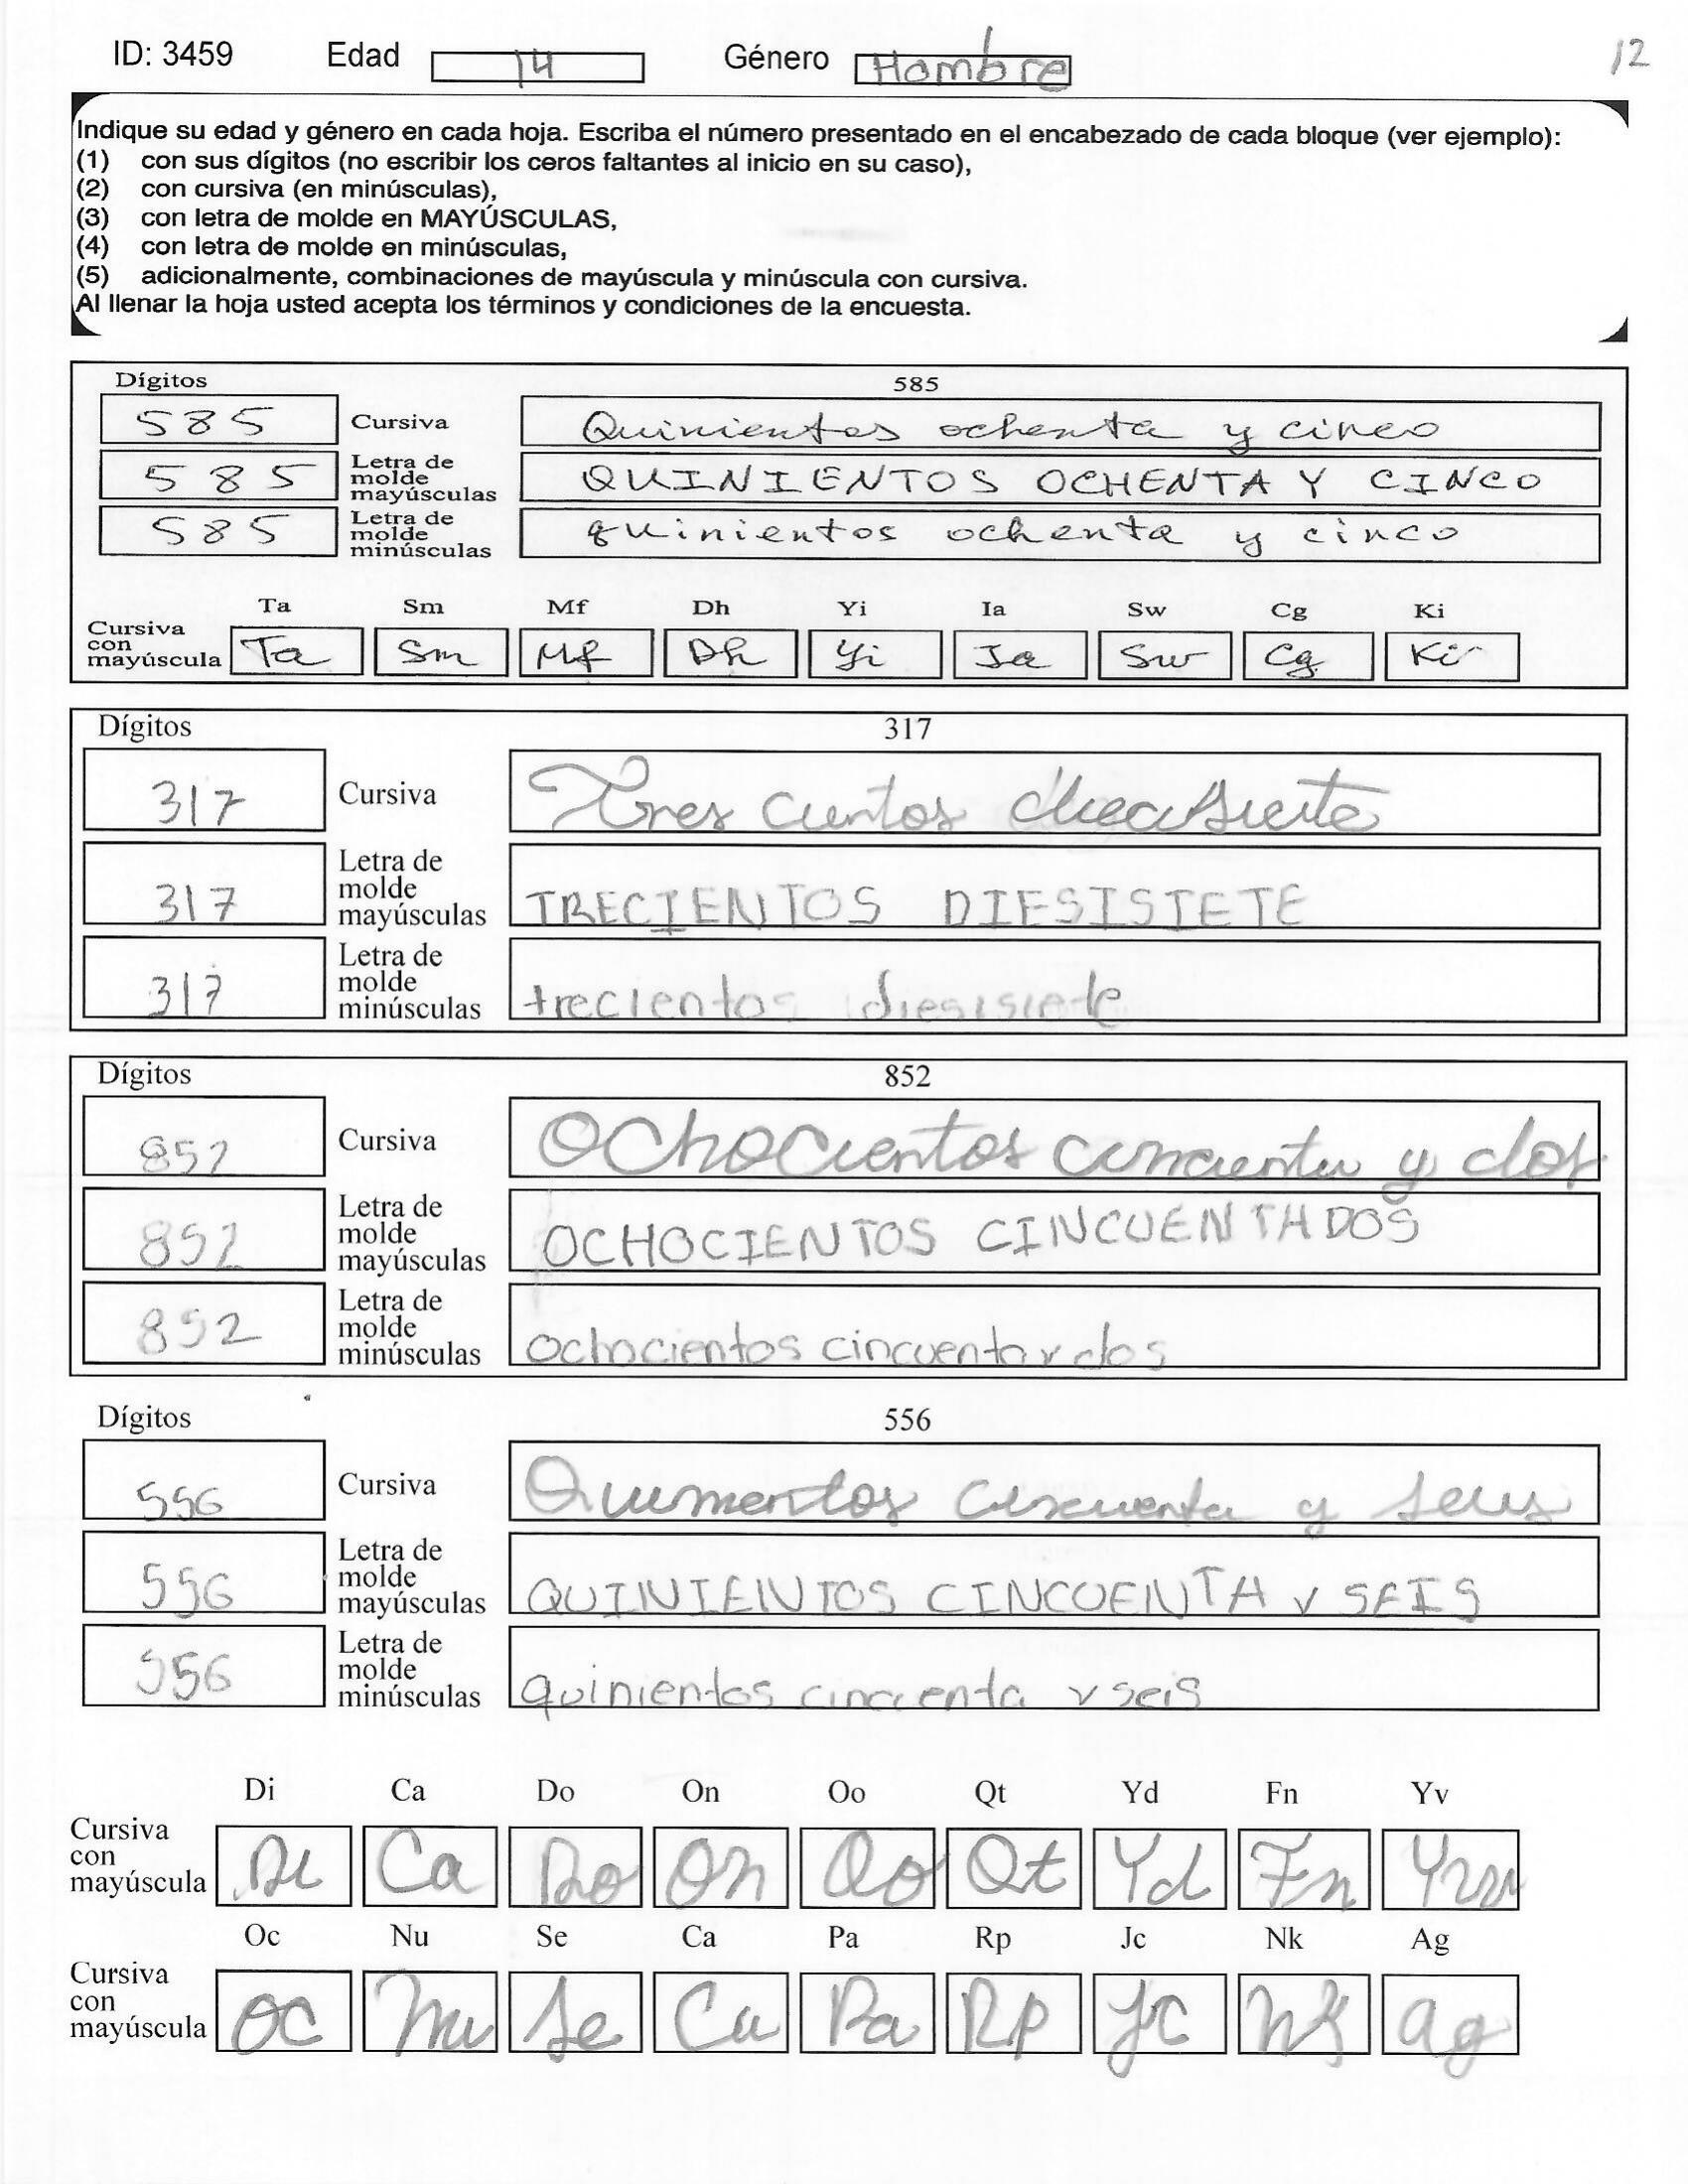 ID: 3459 Edad 14 Género Hombre 12
Indique su edad y género en cada hoja. Escriba el número presentado en el encabezado de cada bloque (ver ejemplo):
(1) con sus dígitos (no escribir los ceros faltantes al inicio en su caso),
(2) con cursiva (en minúsculas),
(3) con letra de molde en MAYÚSCULAS,
(4) con letra de molde en minúsculas,
(5) adicionalmente, combinaciones de mayúscula y minúscula con cursiva.
Al llenar la hoja usted acepta los términos y condiciones de la encuesta.
Dígitos 585
585 Cursiva Quinientos ochenta y cinco
585 Letra de molde mayúsculas QUINIENTOS OCHENTA Y CINCO
585 Letra de molde minúsculas quinientos ochenta y cinco
Ta Sm Mf Dh Yi Ia Sw Cg Ki
Cursiva con mayúscula Ta Sm Mf Dh Yi Ia Sw Cg Ki
Dígitos 317
317 Cursiva Tres cientos
317 Letra de molde mayúsculas TRECIENTOS DIESISIETE
317 Letra de molde minúsculas trecientos diesisiete
Dígitos 852
852 Cursiva Ochocientos y dos
852 Letra de molde mayúsculas OCHOCIENTOS CINCUENTADOS
852 Letra de molde minúsculas ochocientos cincuenta y dos
Dígitos 556
556 Cursiva y seis
556 Letra de molde mayúsculas QUINIENTOS CINCUENTA y SEIS
556 Letra de molde minúsculas quinientos cincuenta y seis
Di Ca Do On Oo Qt Yd Fn Yv
Cursiva con mayúscula Di Ca Do On Oo Qt Yd Fn Yv
Oc Nu Se Ca Pa Rp Jc Nk Ag
Cursiva con mayúscula Oc Nu Se Ca Pa Rp Jc Nk Ag